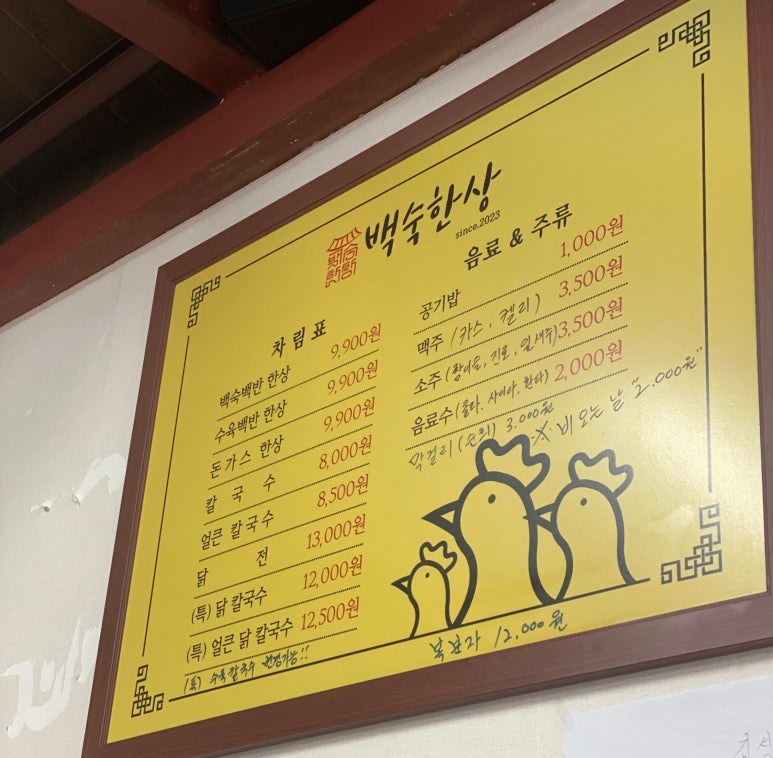 백숙한상
since.2023
차림표
백숙백반 한상 9,900원
수육백반 한상 9,900원
돈가스 한상 9,900원
칼국수 8,000원
얼큰 칼국수 8,500원
닭전 13,000원
(특) 닭 칼국수 12,000원
(특) 얼큰 닭 칼국수 12,500원
(특) 수육 칼국수 변경가능!!
음료 & 주류
공기밥 1,000원
맥주 (카스, 켈리) 3,500원
소주 (참이슬, 진로, 잎새주) 3,500원
음료수 (콜라, 사이다, 환타) 2,000원
막걸리 (순희) 3,000원
※ 비 오는 날 "2,000원"
복분자 12,000원